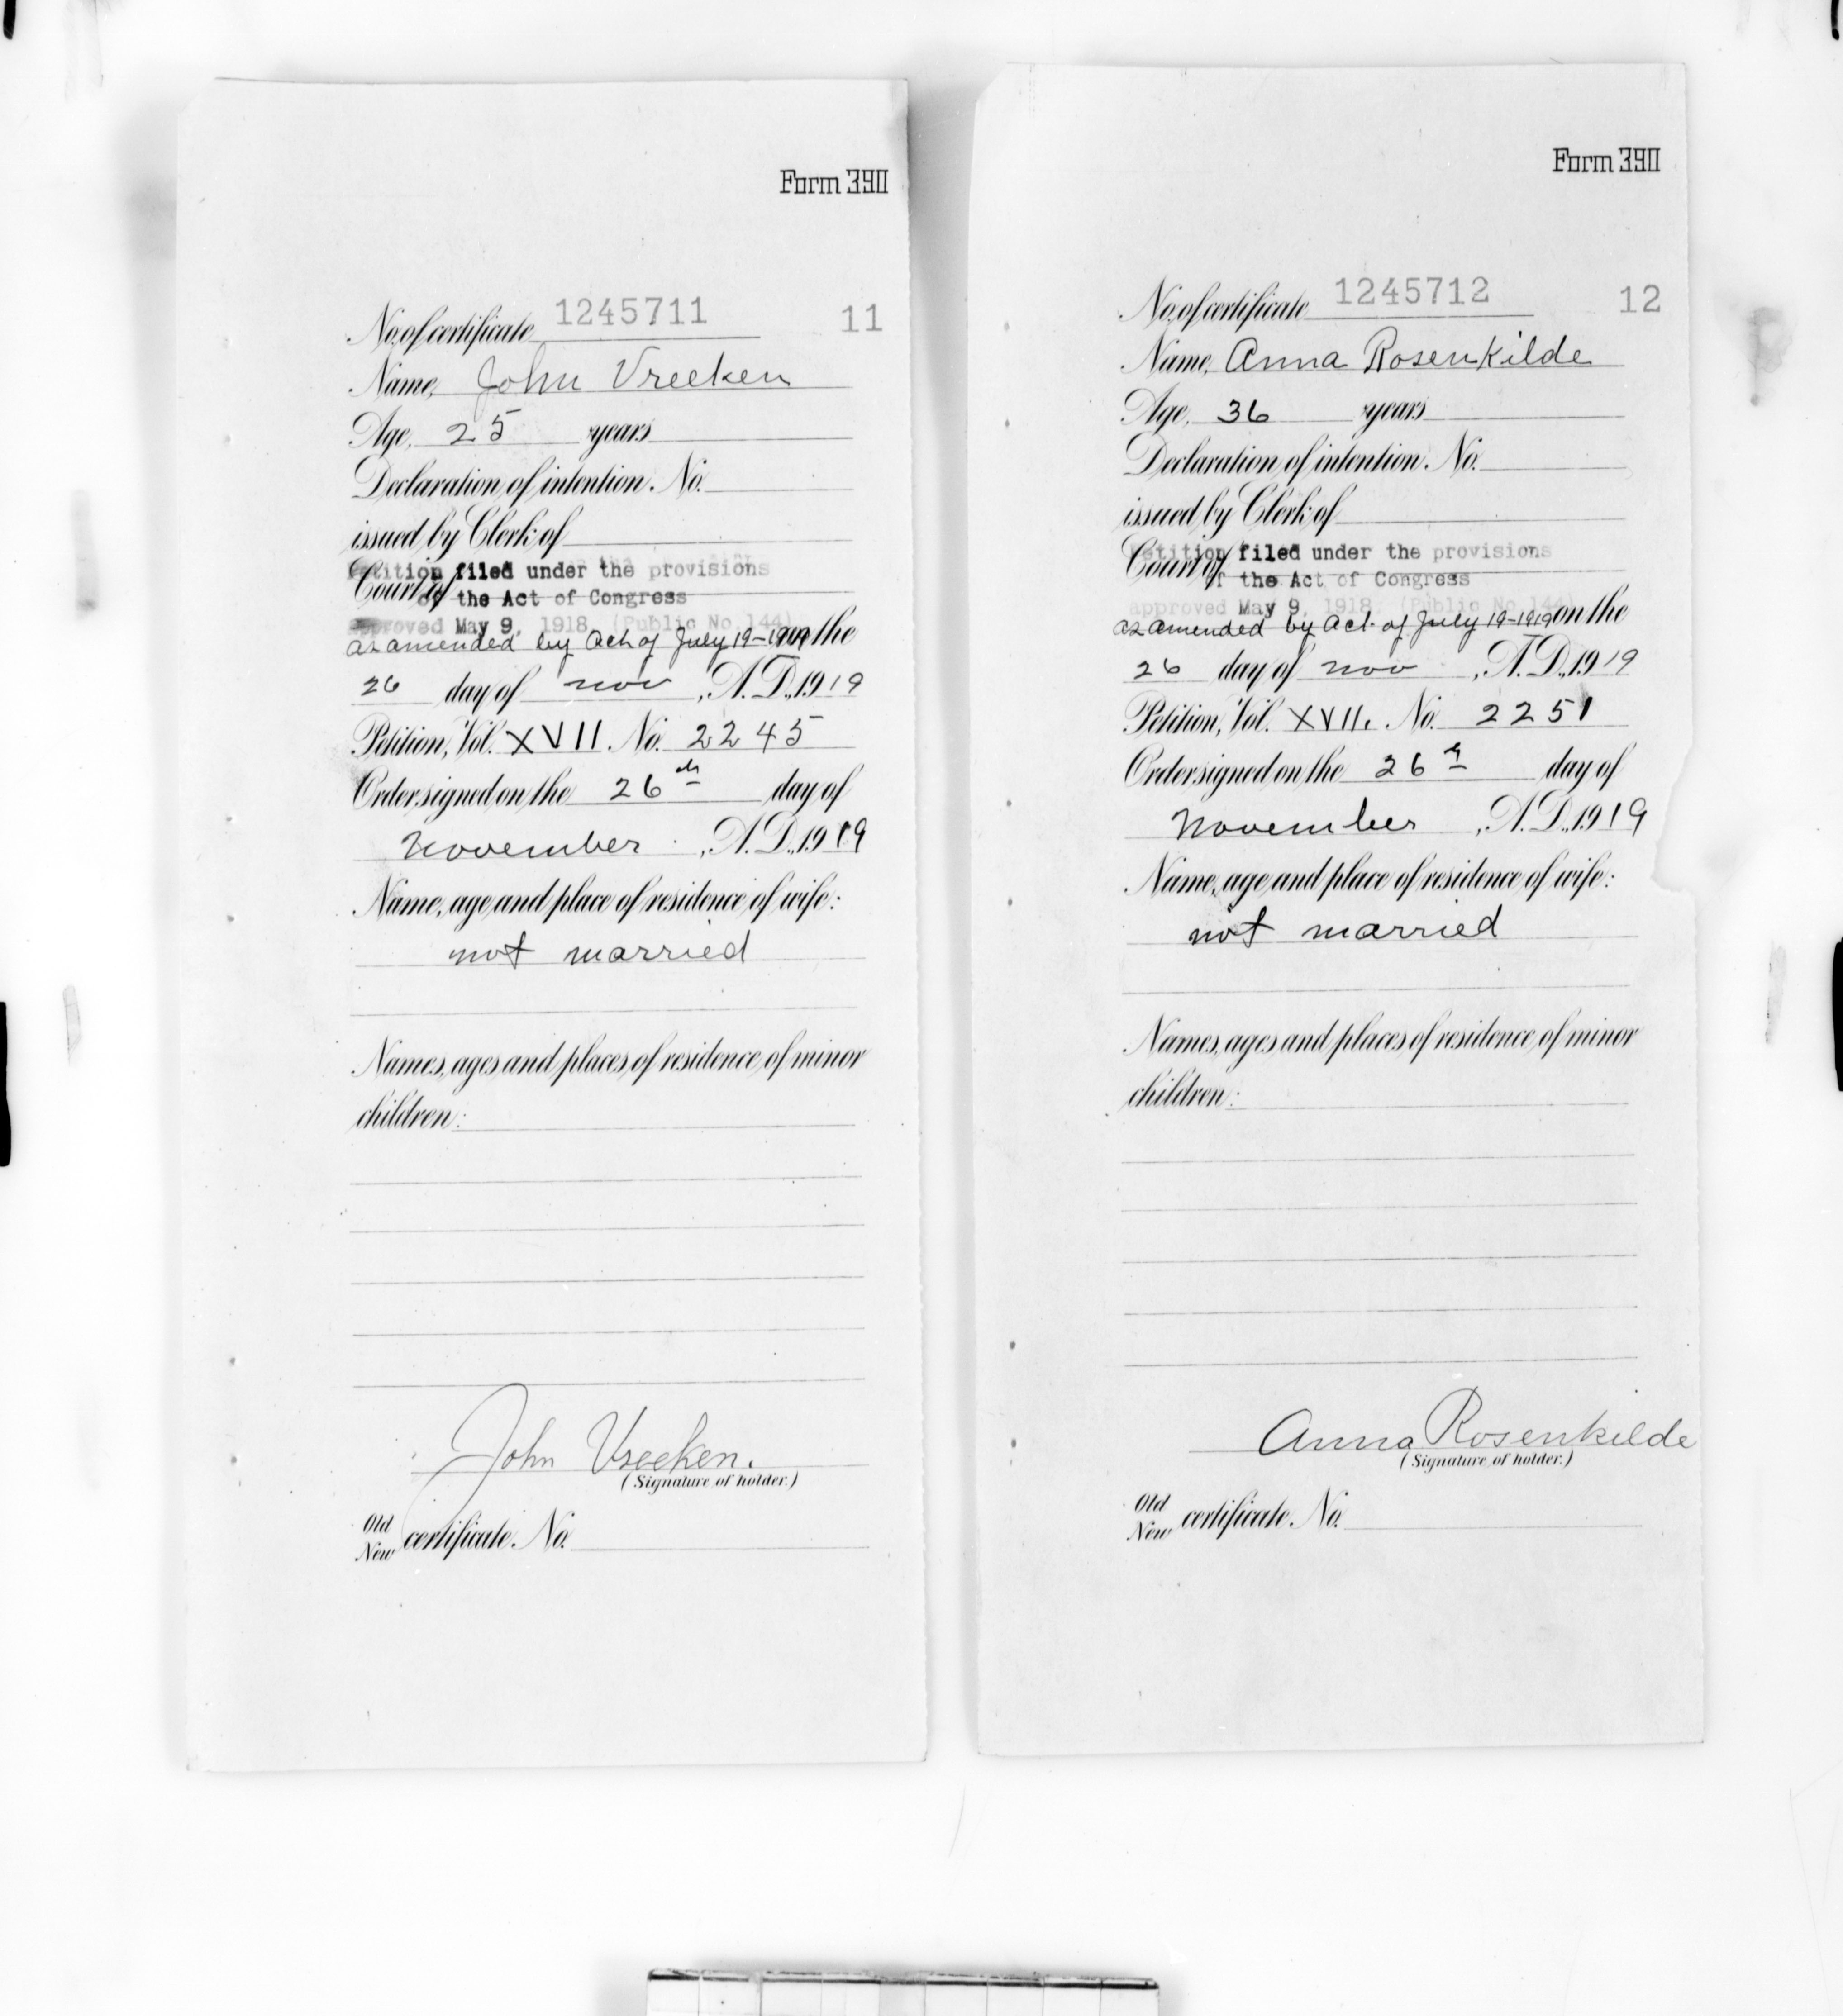 Form 390
No. of certificate 1245711 11
Name, John Vreeken
Age, 25 years
Declaration of intention, No.
issued by Clerk of
Petition filed under the provisions
Court of
of the Act of Congress
approved May 9, 1918. (Public No. 144)
as amended by Act of July 19-1919 on the
26 day of nov , A.D., 1919
Petition, Vol. XVII. No. 2245
Order signed on the 26th day of
November , A.D., 1919
Name, age and place of residence of wife:
not married
Names, ages and places of residence of minor
children:
John Vreeken.
(Signature of holder.)
Old
New certificate No.
Form 390
No. of certificate 1245712 12
Name, Anna Rosenkilde
Age, 36 years
Declaration of intention, No.
issued by Clerk of
Petition filed under the provisions
Court of
of the Act of Congress
approved May 9, 1918. (Public No. 144)
as amended by Act of July 19-1919 on the
26 day of nov , A.D., 1919
Petition, Vol. XVII. No. 2251
Order signed on the 26th day of
November , A.D., 1919
Name, age and place of residence of wife:
not married
Names, ages and places of residence of minor
children:
Anna Rosenkilde
(Signature of holder.)
Old
New certificate No.